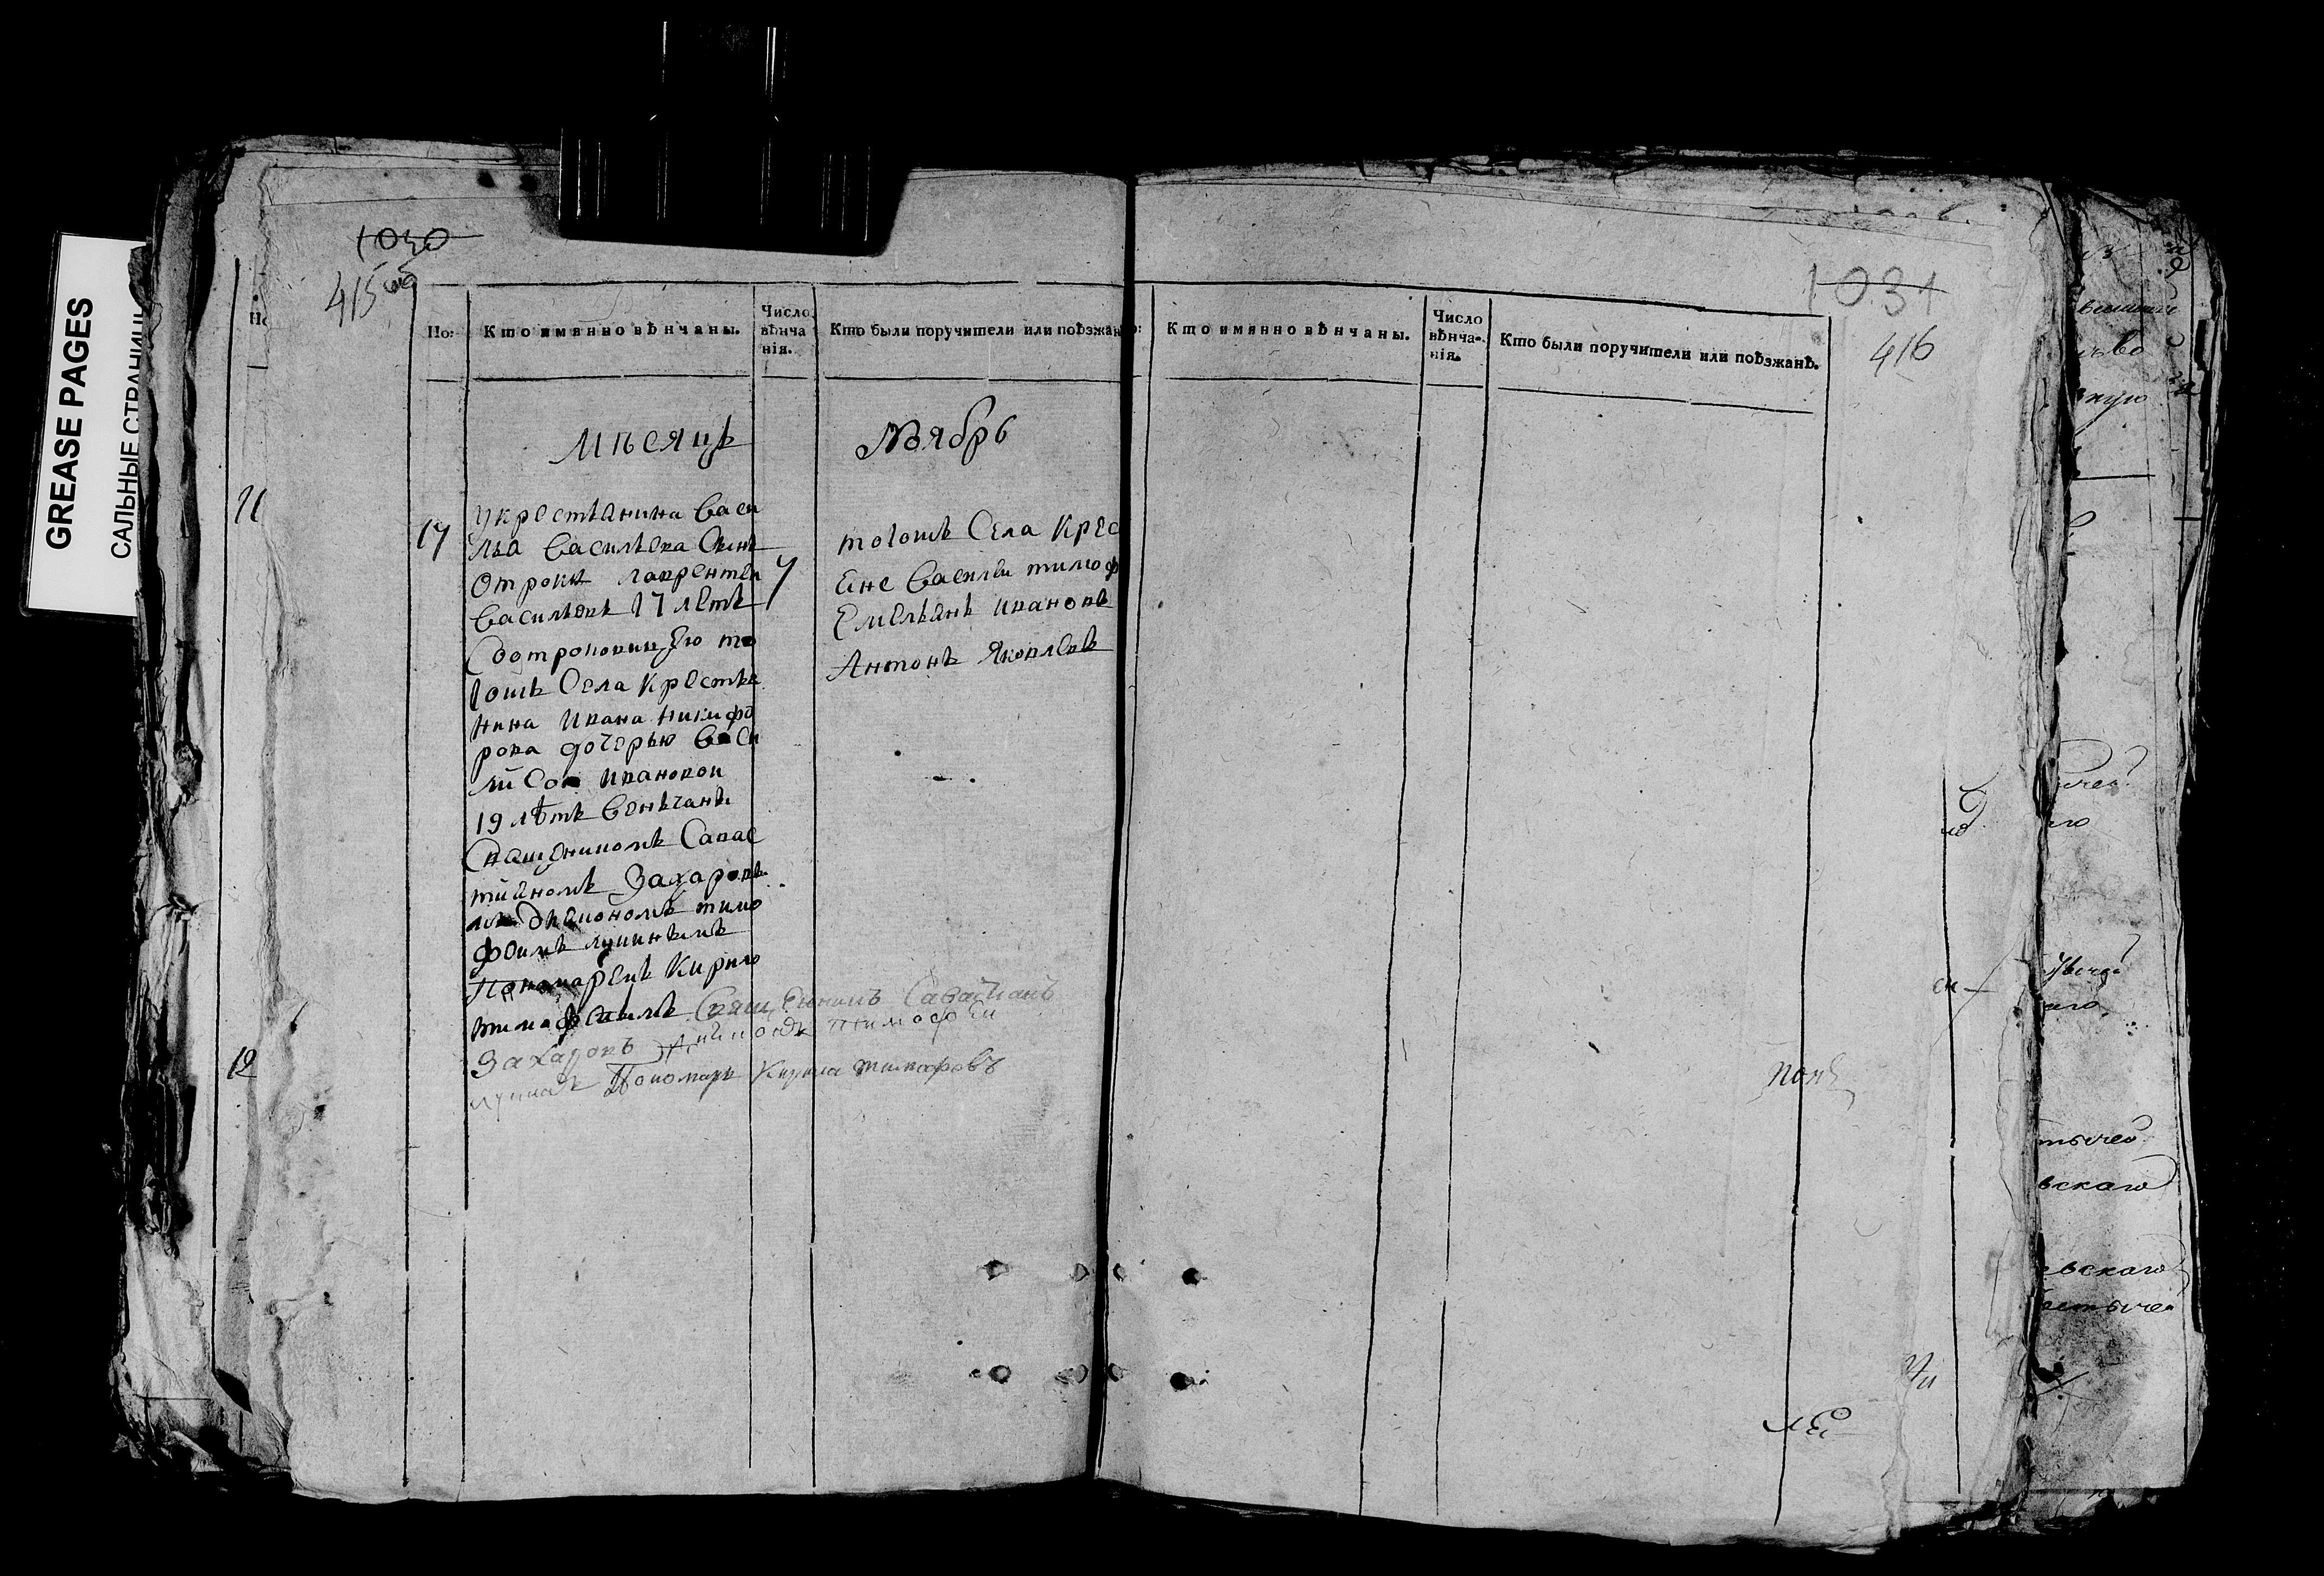 GREASE PAGES
САЛЬНЫЕ СТРАНИЦЫ
1030
415 об
Но:
Кто имянно вѣнчаны.
Число вѣнча нія.
Кто были поручители или поѣзжан
Мѣсяцъ Ноябрь
11
17
укрестьянина Васи
лья Васильева Сынъ
отрокъ лаврентеи
Васильевъ 17 летъ
7
Сботроковицею то
гошъ Села Крестья
нина Ивана Никифо
рова дочерью Васи
лисою Ивановои
19 лѣтъ Венчаны
Священикомъ Савас
тианомъ Захаровы
мъ Дьякономъ тимо
феимъ лукинымъ
Пономаремъ Кирило
тимофеивымъ
тогошъ Села Крес
Ене Василеи тимоф
Емельянъ Ивановъ
Антонъ Яковлевъ
Священикъ Саватианъ
Захаровъ Дьяконъ тимофеи
лукинъ Пономарь Кирила тимофеевъ
12
1031
416
Кто имянно вѣнчаны.
Число вѣнча- нія.
Кто были поручители или поѣзжанѣ.